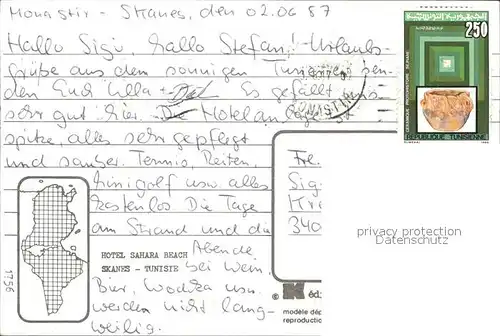 Monastir - Skanes, den 02.06 87
Hallo Sigi, hallo Stefan! Urlaubs-
grüße aus dem sonnigen Tunesien sen-
den Euch Ulla + Es gefällt uns
sehr gut hier. Die Hotelanlage
spitze, alles sehr gepflegt
und sauber. Tennis, Reiten,
Minigolf usw. alles
kostenlos Die Tage
am Strand und die
Abende
bei Wein,
Bier, Wodka usw.
werden nicht lang-
weilig.
250
CERAMIQUE PREHISTORIQUE
REPUBLIQUE TUNISIENNE
Fr.
Sig
340
privacy protection
Datenschutz
1756
HOTEL SAHARA BEACH
SKANES - TUNISIE
© éd
modèle dép
reproduction